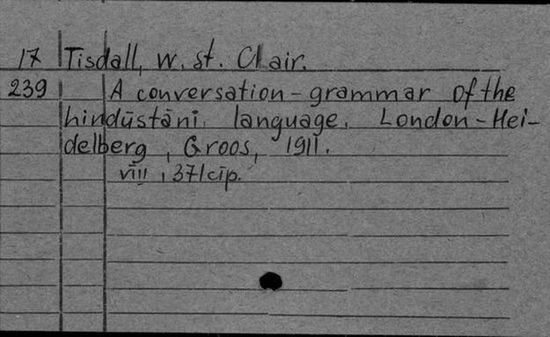 17 Tisdall, W. St. Clair.
239 A conversation-grammar of the
hindūstānī language. London-Hei-
delberg, Groos, 1911.
VIII, 371 cīp.